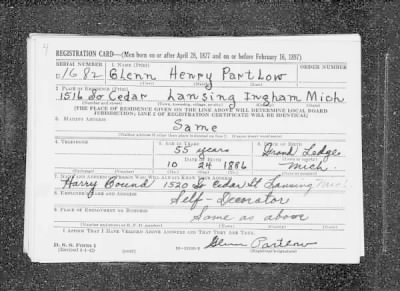 4
REGISTRATION CARD—(Men born on or after April 28, 1877 and on or before February 16, 1897)
SERIAL NUMBER 1. NAME (Print) ORDER NUMBER
U 1682 Glenn Henry Partlow
2. PLACE OF RESIDENCE (Print)
1516 So Cedar Lansing Ingham Mich
(Number and street) (Town, township, village, or city) (County) (State)
[THE PLACE OF RESIDENCE GIVEN ON THE LINE ABOVE WILL DETERMINE LOCAL BOARD
JURISDICTION; LINE 2 OF REGISTRATION CERTIFICATE WILL BE IDENTICAL]
3. MAILING ADDRESS
Same
4. TELEPHONE 5. AGE IN YEARS 6. PLACE OF BIRTH
55 years Grand Ledge
DATE OF BIRTH (Town or county)
10 24 1886 Mich.
(Mo.) (Day) (Yr.) (State or country)
7. NAME AND ADDRESS OF PERSON WHO WILL ALWAYS KNOW YOUR ADDRESS
Harry Bound 1520 So Cedar St Lansing Mich
8. EMPLOYER'S NAME AND ADDRESS
Self - Decorator
9. PLACE OF EMPLOYMENT OR BUSINESS
Same as above
I AFFIRM THAT I HAVE VERIFIED ABOVE ANSWERS AND THAT THEY ARE TRUE.
D. S. S. Form 1
(Revised 4-1-42) (over)
Glenn Partlow